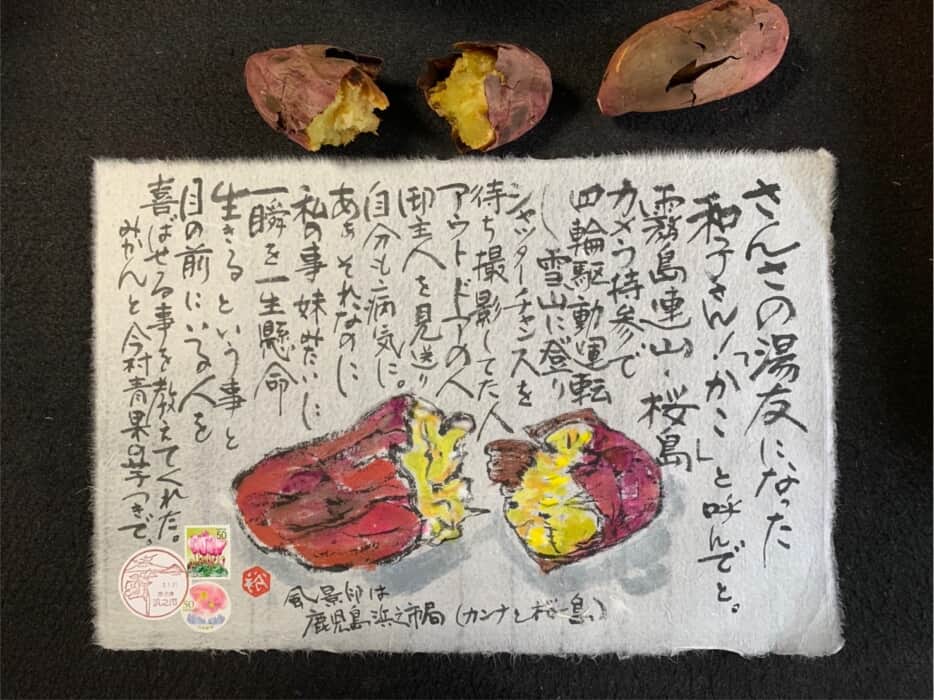 さんさの湯友になった
和子さん!「かこ」と呼んでと。
霧島連山・桜島
カメラ持参で
四輪駆動運転
し雪山に登り
シャッターチャンスを
待ち撮影してた人
アウトドアの人
御主人を見送り
自分も病気に。
あぁそれなのに
私の事妹みたいに
一瞬を一生懸命
生きるという事と
目の前にいる人を
喜ばせる事を教えてくれた。
みかんと今村青果の芋つぎで、
風景印は
鹿児島浜之市局(カンナと桜島)
50
50
浜之市